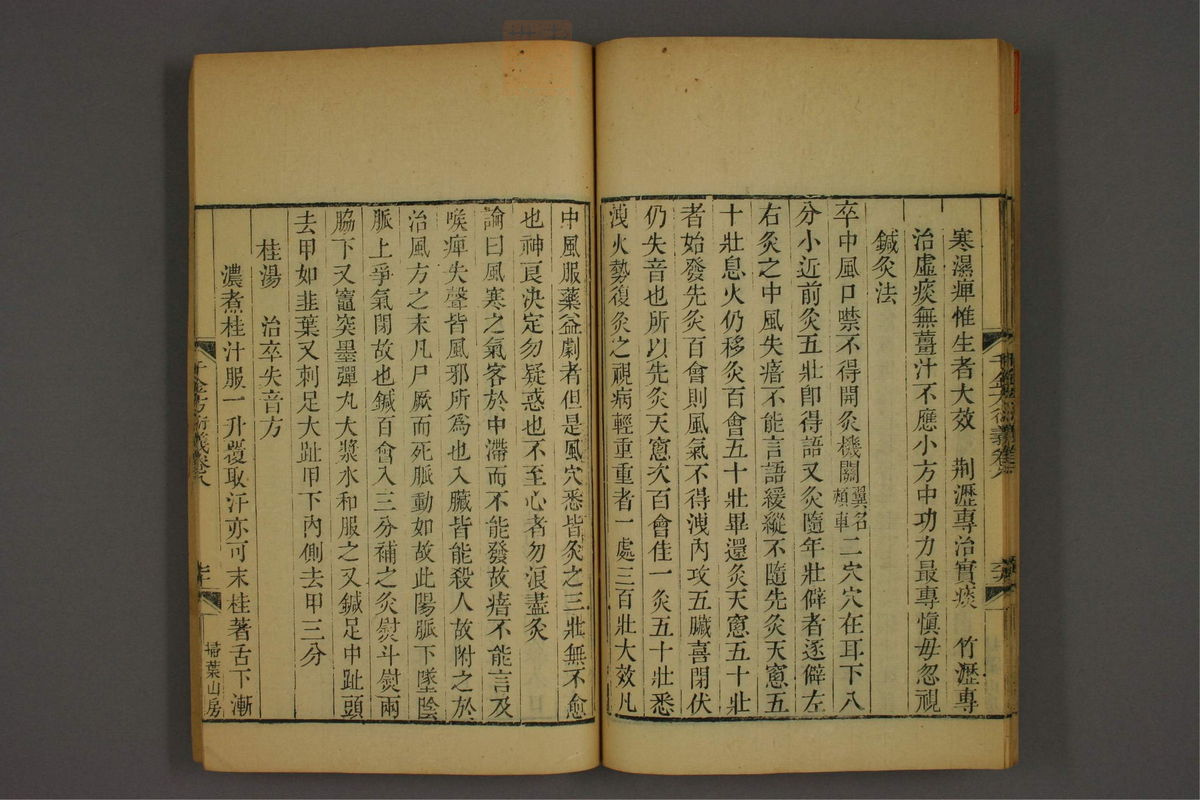 寒濕痺惟生者大效　荆瀝專治實痰　竹瀝專
治虛痰無薑汁不應小方中功力最專愼毋忽視
鍼灸法
卒中風口噤不得開灸機關翼名頰車二穴穴在耳下八
分小近前灸五壯卽得語又灸隨年壯僻者逐僻左
右灸之中風失瘖不能言語緩縱不隨先灸天窻五
十壯息火仍移灸百會五十壯畢還灸天窻五十壯
者始發先灸百會則風氣不得洩內攻五臟喜閉伏
仍失音也所以先灸天窻次百會佳一灸五十壯悉
洩火勢復灸之視病輕重重者一處三百壯大效凡
中風服藥益劇者但是風穴悉皆灸之三壯無不愈
也神良决定勿疑惑也不至心者勿浪盡灸
論曰風寒之氣客於中滯而不能發故瘖不能言及
喉痺失聲皆風邪所爲也入臟皆能殺人故附之於
治風方之末凡尸厥而死脈動如故此陽脈下墜陰
脈上爭氣閉故也鍼百會入三分補之灸熨斗熨兩
脇下又竈突墨彈丸大漿水和服之又鍼足中趾頭
去甲如韭葉又刺足大趾甲下內側去甲三分
桂湯　治卒失音方
濃煮桂汁服一升覆取汗亦可末桂著舌下漸
千金方衍義卷八
掃葉山房